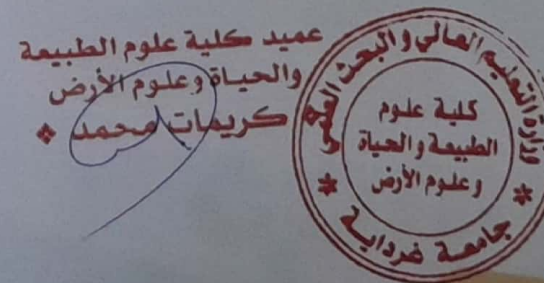 عميد كلية علوم الطبيعة
والحياة وعلوم الأرض
كريمات محمد
وزارة التعليم العالي والبحث العلمي
كلية علوم
الطبيعة والحياة
وعلوم الأرض
جامعة غرداية